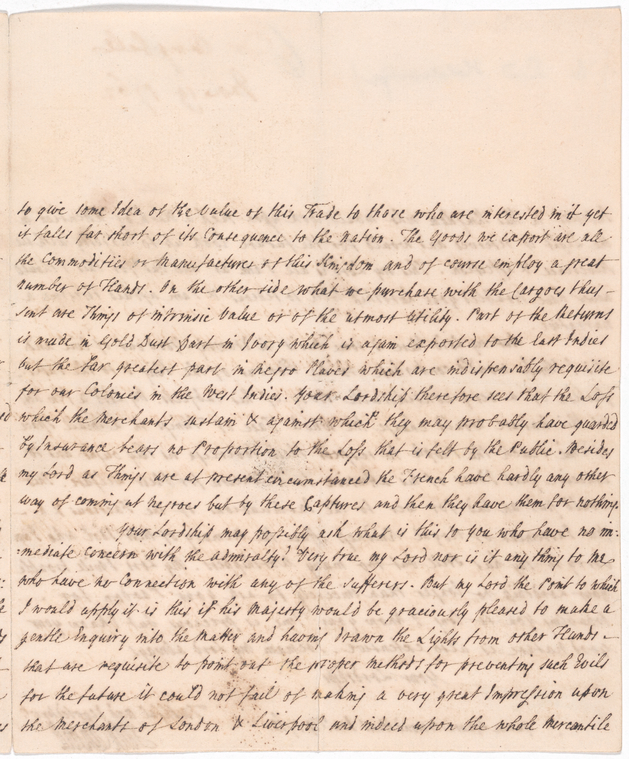 to give some Idea of the Value of this Trade to those who are interested in it yet
it falls far short of its Consequence to the Nation. The Goods we export are all
the Commodities or Manufactures of this Kingdom and of course employ a great
number of Hands. On the other side what we purchase with the Cargoes thus
sent are Things of intrinsic Value or of the utmost Utility. Part of the Returns
is made in Gold Dust Part in Ivory which is again exported to the East Indies
but the far greatest part in Negro Slaves which are indispensably requisite
for our Colonies in the West Indies. Your Lordship therefore sees that the Loss
which the Merchants sustain & against which they may probably have guarded
by Insurance bears no Proportion to the Loss that is felt by the Public. Besides
my Lord as Things are at present circumstanced the French have hardly any other
way of coming at Negroes but by these Captures and then they have them for nothing.
Your Lordship may possibly ask what is this to you who have no im:
:mediate Concern with the Admiralty? Very true my Lord nor is it any thing to me
who have no Connection with any of the Sufferers. But my Lord the Point to which
I would apply it is this if his Majesty would be graciously pleased to make a
gentle Enquiry into the Matter and having drawn the Lights from other Hands
that are requisite to point out the proper Methods for preventing such Evils
for the future it could not fail of making a very great Impression upon
the Merchants of London & Liverpool and indeed upon the whole Mercantile